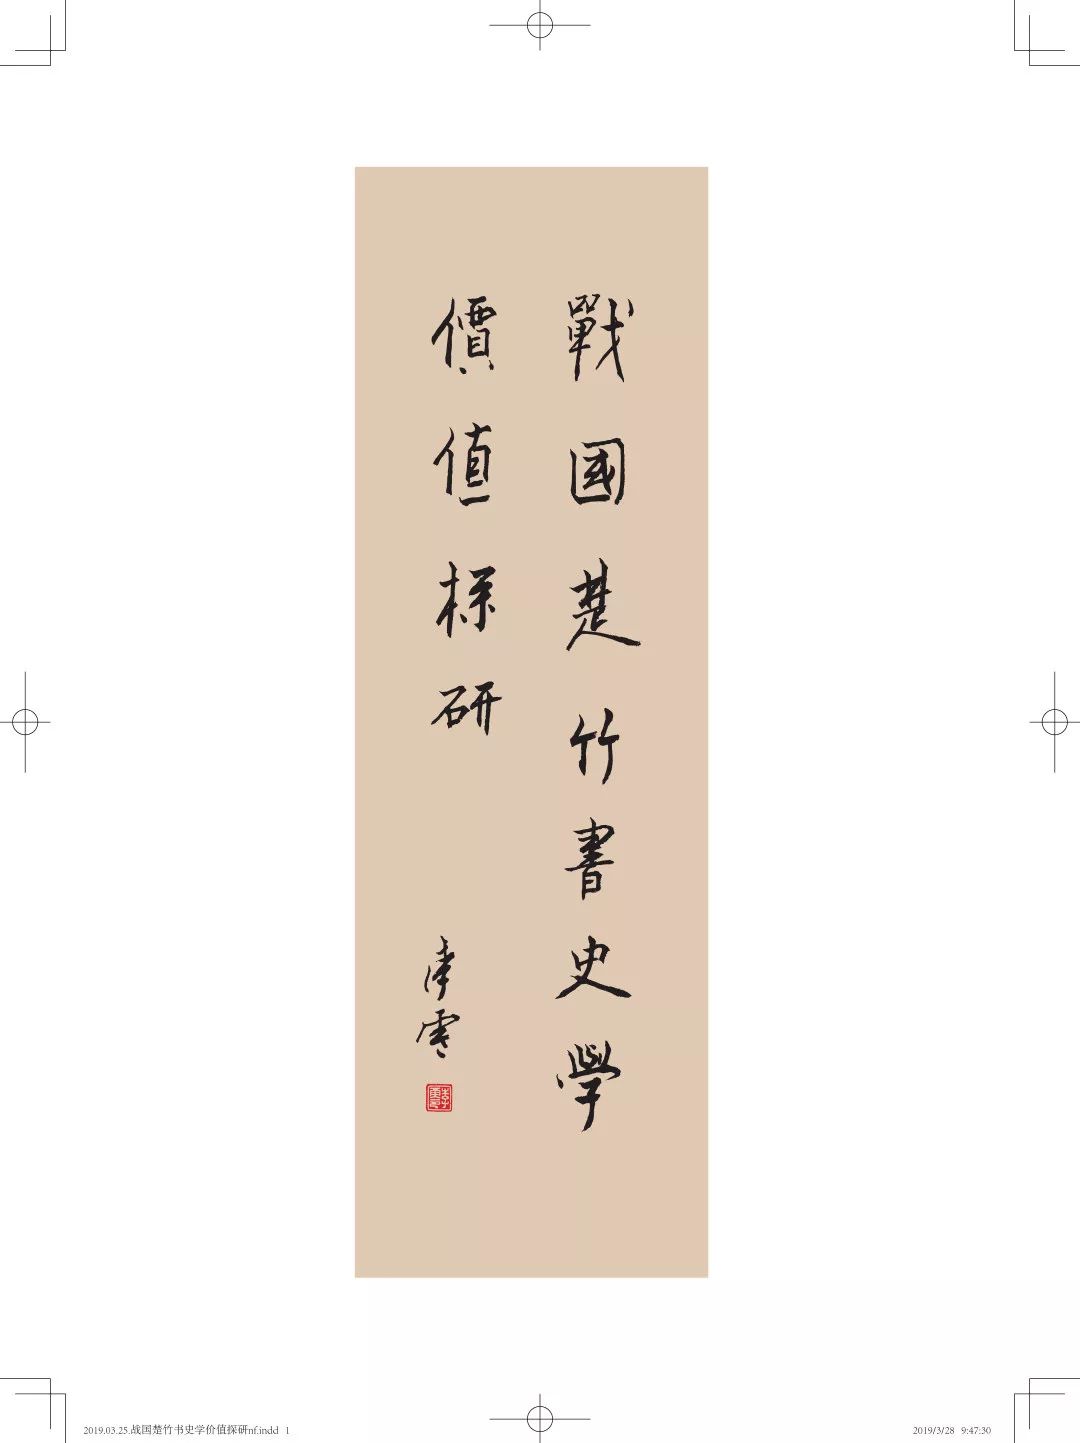 戰國楚竹書史學
價值探研
2019.03.25.战国楚竹书史学价值探研nf.indd 1
2019/3/28 9:47:30